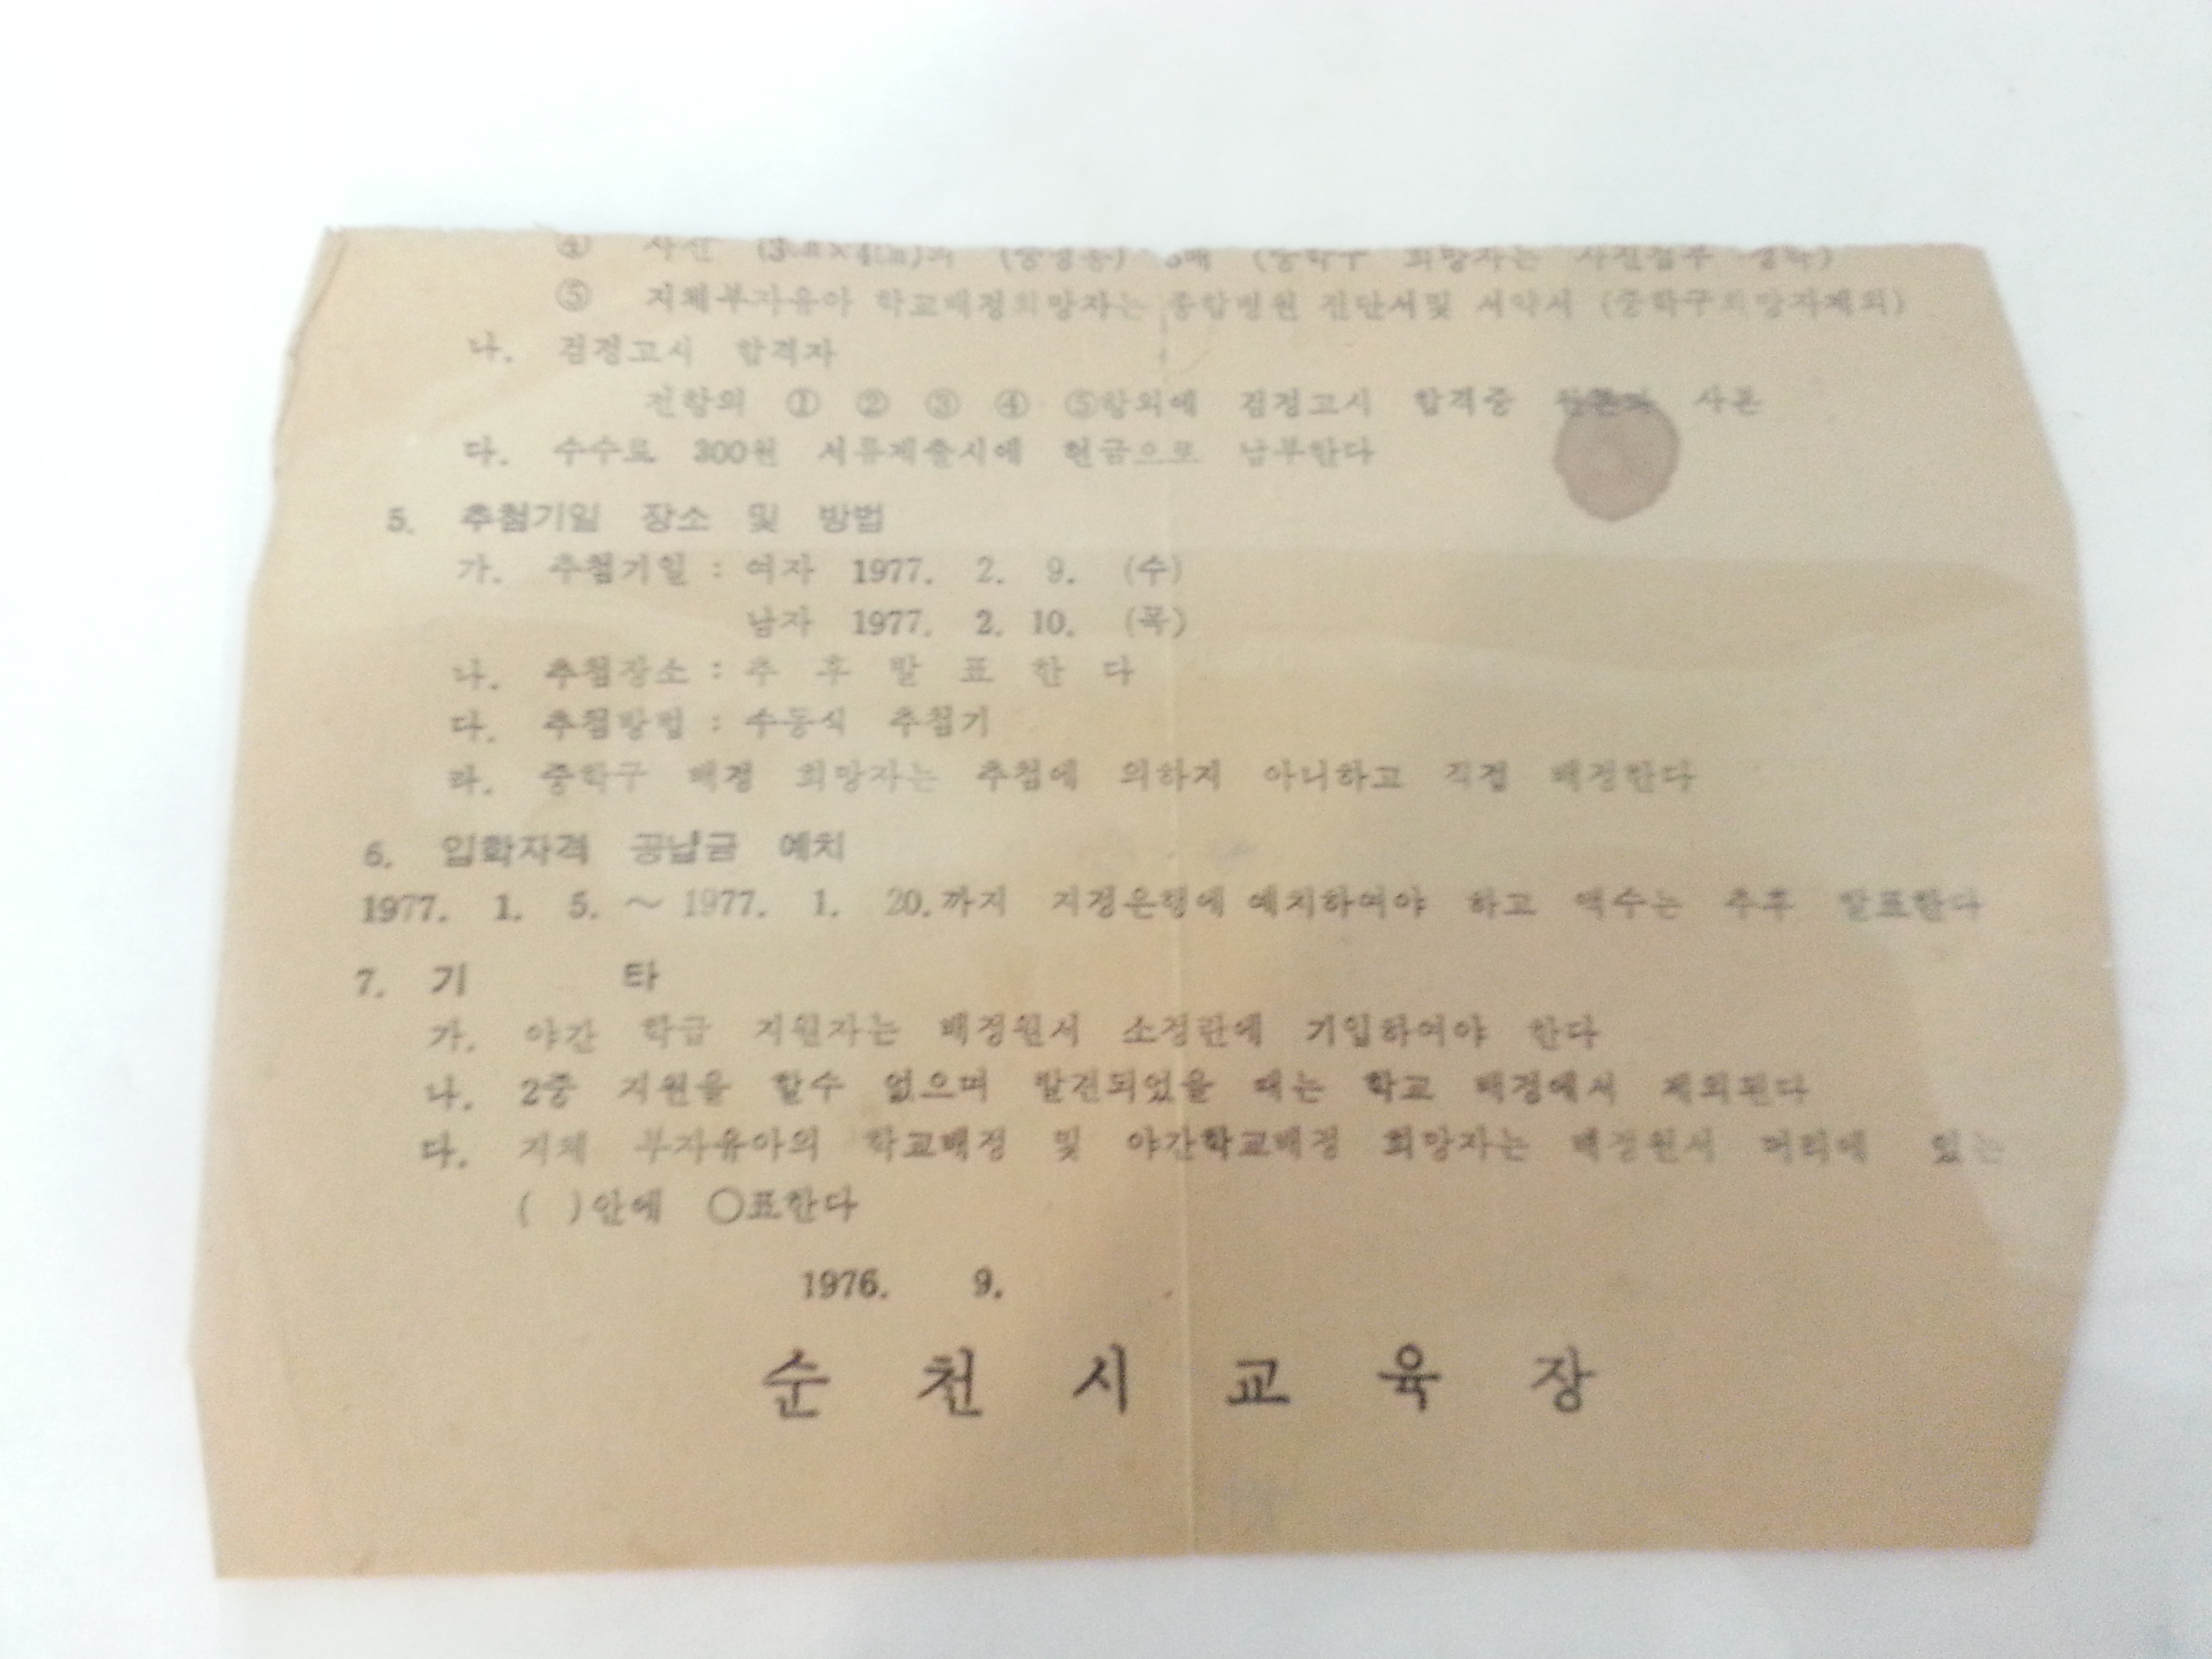 ④ 사진 (3㎝×4㎝)의 (중학구 희망자는 사진첨부 생략)
⑤ 지체부자유아 학교배정희망자는 종합병원 진단서및 서약서 (중학구희망자제외)
나. 검정고시 합격자
전항의 ① ② ③ ④ ⑤항외에 검정고시 합격증 사본
다. 수수료 300원 서류제출시에 현금으로 납부한다
5. 추첨기일 장소 및 방법
가. 추첨기일 : 여자 1977. 2. 9. (수)
남자 1977. 2. 10. (목)
나. 추첨장소 : 추 후 발 표 한 다
다. 추첨방법 : 수동식 추첨기
라. 중학구 배정 희망자는 추첨에 의하지 아니하고 직접 배정한다
6. 입학자격 공납금 예치
1977. 1. 5. ~ 1977. 1. 20.까지 지정은행에 예치하여야 하고 액수는 추후 발표한다
7. 기 타
가. 야간 학급 지원자는 배정원서 소정란에 기입하여야 한다
나. 2중 지원을 할수 없으며 발견되었을 때는 학교 배정에서 제외된다
다. 지체 부자유아의 학교배정 및 야간학교배정 희망자는 배정원서 머리에 있는
( )안에 ○표한다
1976. 9.
순 천 시 교 육 장